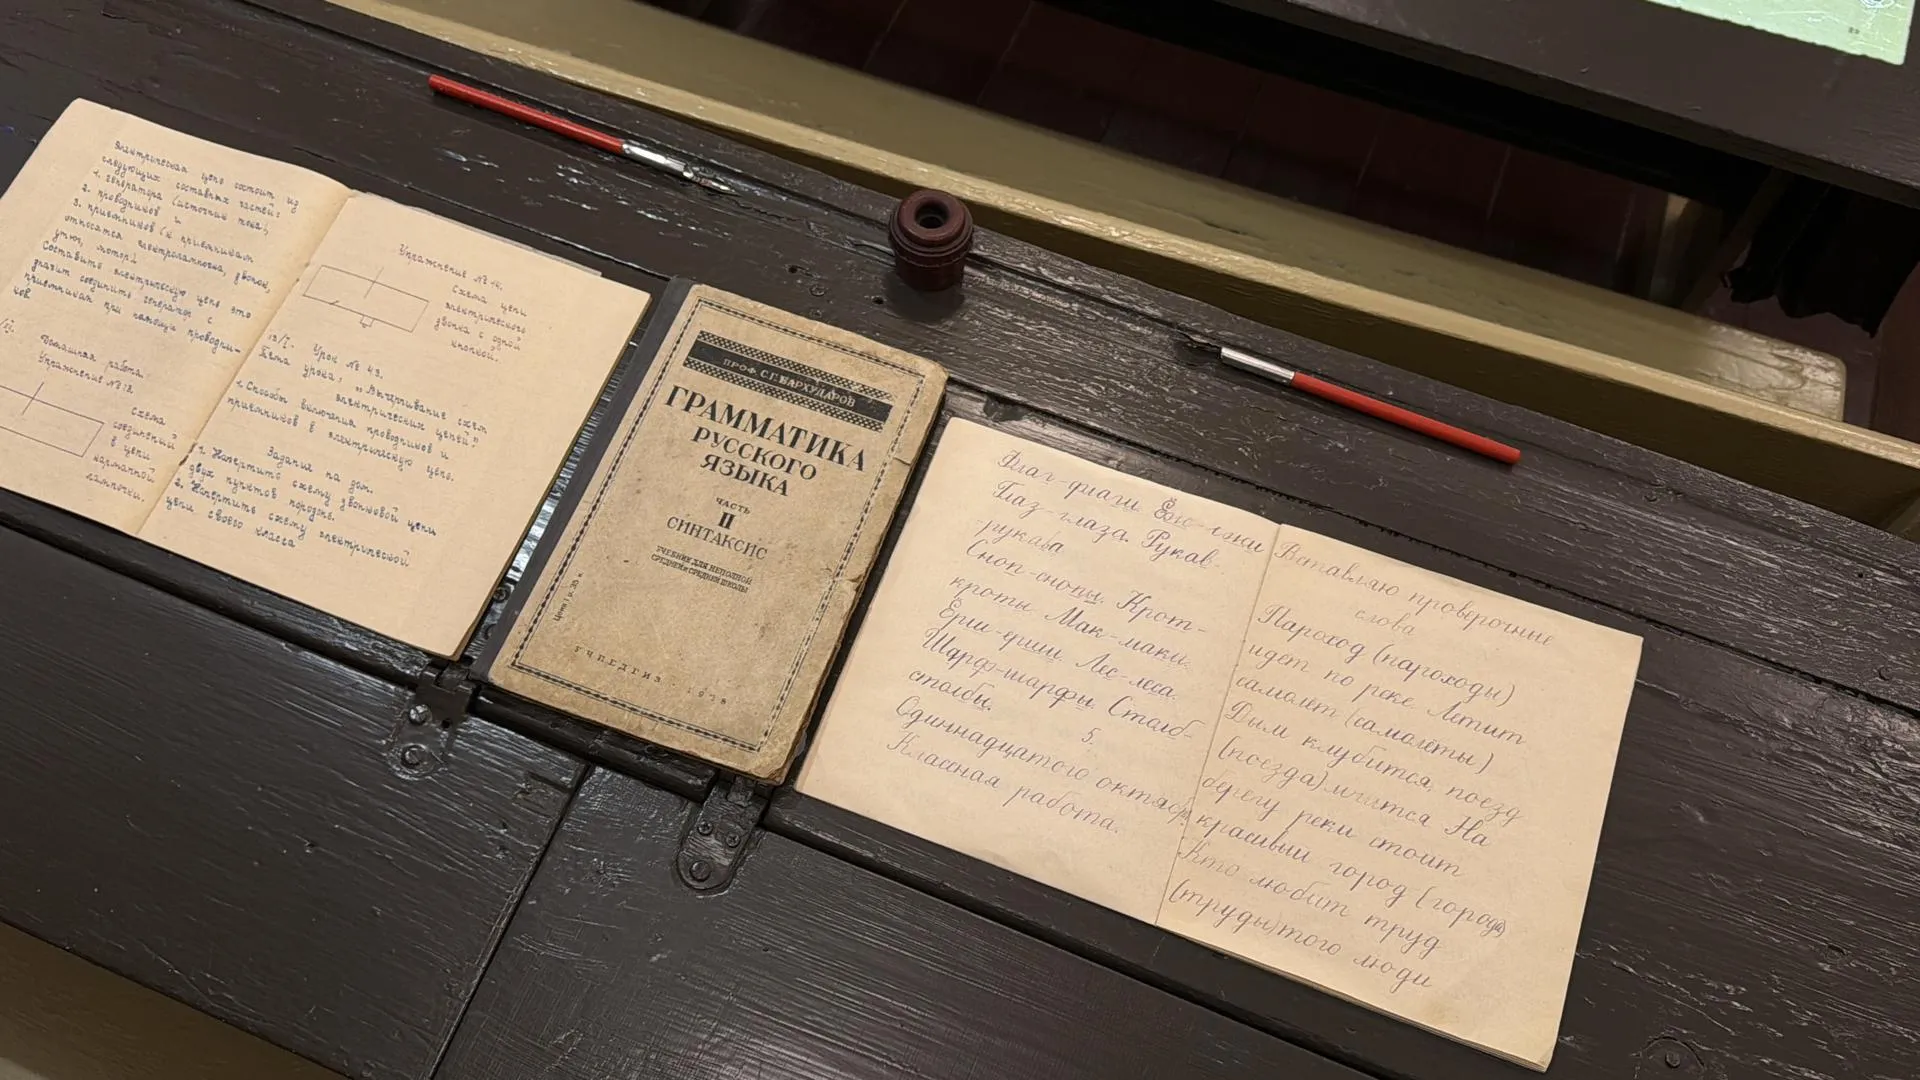 Электрическая цепь состоит из
следующих составных частей:
1. генератора (источник тока),
2. проводников и
3. приемников (к приемникам
относятся электролампочка, звонок,
утюг, мотор.)
Составить электрическую цепь это
значит соединить генератор с
приемниками при помощи проводни-
ков
Домашняя работа.
Упражнение № 13.
Схема
соединений
в цепи
карманной
лампочки.
Упражнение № 14.
Схема цепи
электрического
звонка с одной
кнопкой.
12/I. Урок № 43.
Тема урока: „Вычерчивание схем
электрических цепей"
1. Способы включения проводников и
приемников в электрическую цепь.
Задание на дом.
1. Начертить схему звонковой цепи
двух пунктов порознь.
2. Начертить схему электрической
цепи своего класса
ПРОФ. С.Г. БАРХУДАРОВ
ГРАММАТИКА
РУССКОГО
ЯЗЫКА
ЧАСТЬ
II
СИНТАКСИС
УЧЕБНИК ДЛЯ НЕПОЛНОЙ
СРЕДНЕЙ И СРЕДНЕЙ ШКОЛЫ
Цена 1 р. 35 к.
УЧПЕДГИЗ · 1938
Флаг-флаги. Ёж-ежи
Глаз-глаза. Рукав-
-рукава
Сноп-снопы. Крот-
кроты. Мак-маки.
Ёрш-ерши. Лес-леса.
Шарф-шарфы. Столб-
столбы.
5.
Одиннадцатого октябр.
Классная работа.
Вставляю проверочные
слова
Пароход (пароходы)
идет по реке. Летит
самолет (самолеты)
Дым клубится, поезд
(поезда) мчится. На
берегу реки стоит
красивый город (города)
Кто любит труд
(труды) того люди